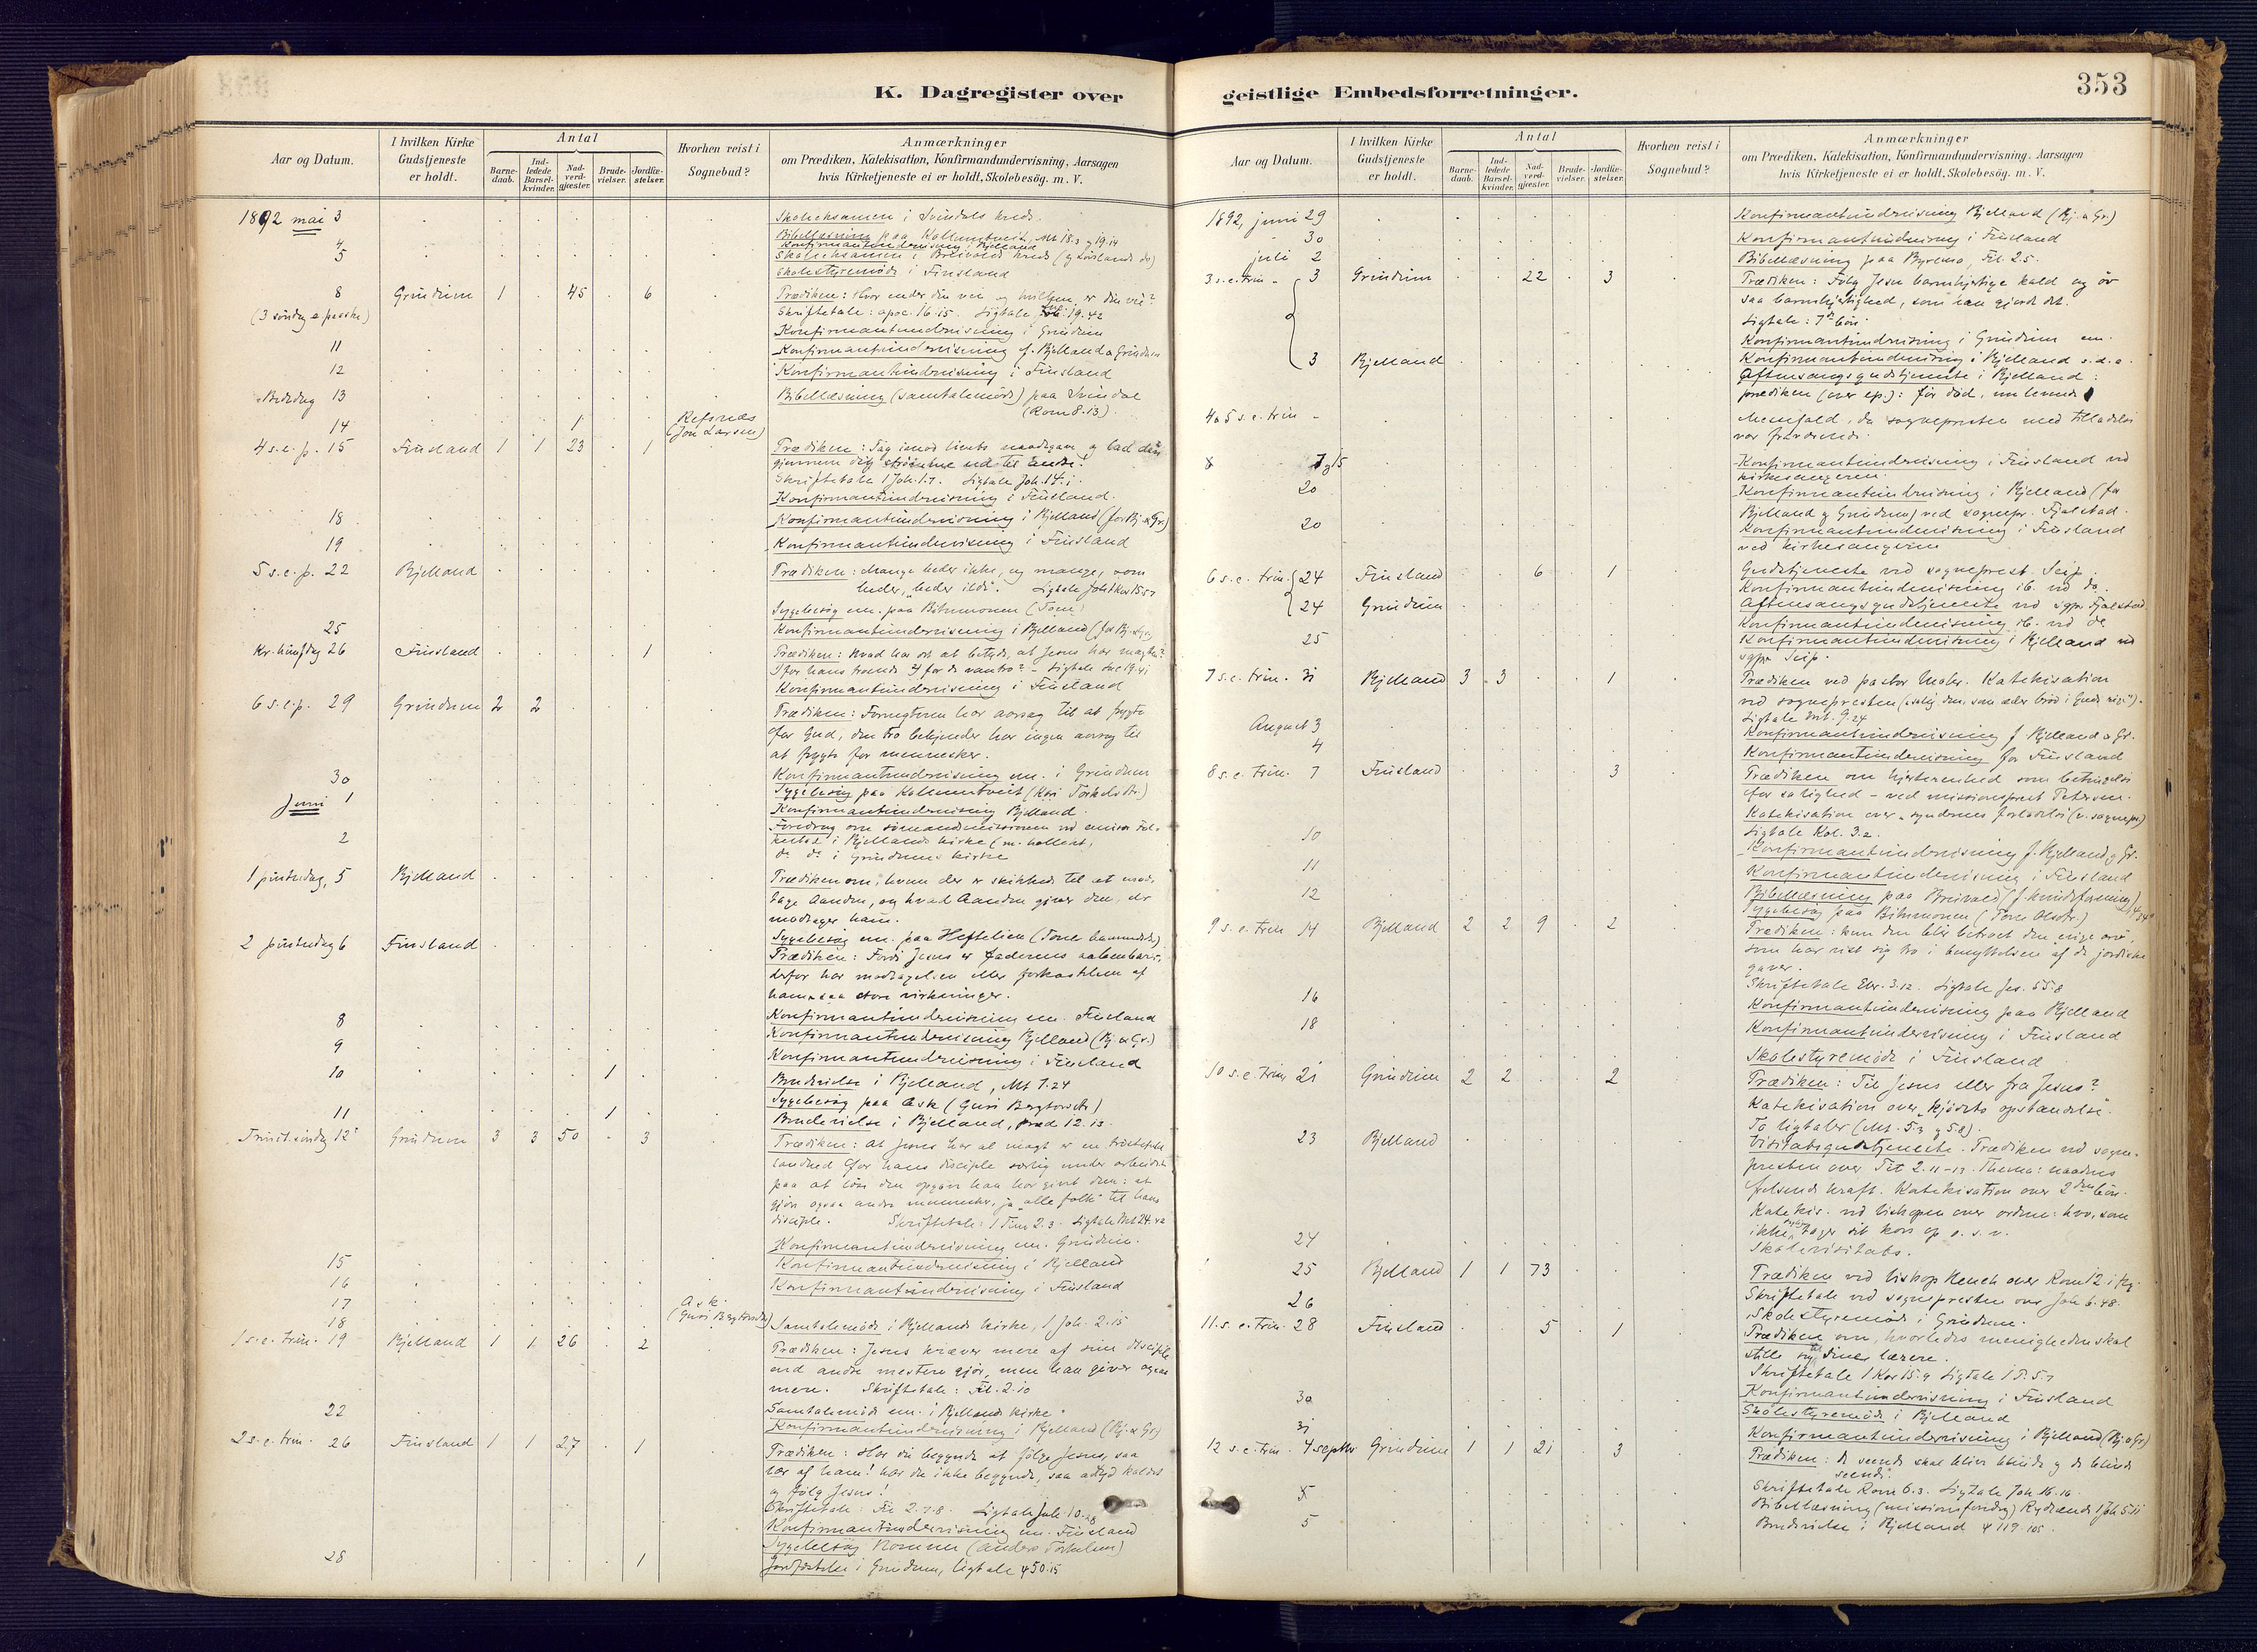 K. Dagregister over
Aar og Datum.
I hvilken Kirke Gudstjeneste er holdt.
Antal
Barne-daab.
Ind-ledede Barsel-kvinder.
Nad-verd-gjæster.
Brude-vielser.
Jordfæ-stelser.
Hvorhen reist i Sognebud?
Anmærkninger
om Prædiken, Katekisation, Konfirmandundervisning, Aarsagen
hvis Kirketjeneste ei er holdt, Skolebesøg. m. V.
1892 mai 3 Skoleeksamen i Svindals kreds.
Bibellæsning paa Kollungtveit, Mt 18.3 og 19.14
4 Konfirmantundervisning i Bjelland
5 Skoleeksamen i Breivolds kreds
Skolestyremøde i Finsland
8 Grindum 1 45 6 Prædiken: Hvor ender din vei og hvilken er din vei?
(3 søndag e. paaske) Skriftetale: apoc. 16.15. Ligtale 19.42
Konfirmantundervisning i Grindum
11 Konfirmantundervisning f. Bjelland a Grindum
12 Konfirmantundervisning i Finsland
Bededag 13 Bibellæsning (samtalemøde) paa Svindal
(Rom 8.13).
14 1 Refsnæs
(Jon Larsen)
4 s. e. p. 15 Finsland 1 1 23 1 Prædiken: Tag imod
gjennem dig strømme ud til andre!
Skriftetale 1 Joh. 1.7. Ligtale Joh. 14.1.
Konfirmantundervisning i Finsland.
18 Konfirmantundervisning i Bjelland (for Bj. a Gr.)
19 Konfirmantundervisning i Finsland
5 s. e. p. 22 Bjelland Prædiken: Mange beder ikke, og mange, som
beder, "beder ilde". Ligtale
Sygebesøg em. paa
25 Konfirmantundervisning i Bjelland
Kr. himfdag 26 Finsland 1 Prædiken: Hvad har det at betyde, at Jesus har magten?
for hans troende? for de vantro? - Ligtale Luc 19.41
Konfirmantundervisning i Finsland
6 s. e. p. 29 Grindum 2 2 Prædiken: Fornegteren har aarsag til at frygte
for Gud, den tro bekjender har ingen aarsag til
at frygte for mennesker.
Konfirmantundervisning em. i Grindum
30 Sygebesøg paa Kollungtveit
Juni 1 Konfirmantundervisning Bjelland.
Foredrag om sømandsmissionen ved
2 i Bjellands kirke
do do i Grindums kirke
1 pintsedag, 5 Bjelland Prædiken om, hvem der er skikkede til at mod-
tage Aanden, og hvad Aanden giver dem, der
modtager ham.
Sygebesøg em. paa
2 pintsedag 6 Finsland Prædiken: Fordi Jesus er Faderens aabenbarer,
derfor har modtagelsen eller forkastelsen af
ham saa store virkninger.
Konfirmantundervisning em. Finsland
8 Konfirmantundervisning Bjelland (Bj. a Gr.)
9 Konfirmantundervisning i Finsland
10 1 Brudevielse i Bjelland, Mt 7.24
Sygebesøg paa Ask
11 1 Brudevielse i Bjelland, 12.13
Trinit. søndag 12 Grindum 3 3 50 3 Prædiken: at Jesus har al magt er en
sandhed for hans disciple særlig under arbeidet
paa at løse den opgave han har givet dem: at
gjøre ogsaa andre mennesker, ja "alle folk" til hans
disciple. Skriftetale: 1 Tim 2.3. Ligtale Mt 24.42
Konfirmantundervisning em. Grindum.
15 Konfirmantundervisning i Bjelland
16 Konfirmantundervisning i Finsland
17 Ask
18 Samtalemøde i Bjellands kirke, 1 Joh. 2.15
1 s. e. trin. 19 Bjelland 1 1 26 2 Prædiken: Jesus kræver mere af sine disciple
end andre mestere gjør, men han giver ogsaa
mere. Skriftetale: Fil. 2.10
Samtalemøde em. i Bjellands kirke.
22 Konfirmantundervisning i Bjelland (Bj. a Gr.)
2 s. e. trin. 26 Finsland 1 1 27 1 Prædiken: Har du begyndt at følge Jesus, saa
lær af ham! har du ikke begyndt, saa
og følg Jesus!
Skriftetale: Fil 2.7-8. Ligtale Joh. 10.28
Konfirmantundervisning em. Finsland
Sygebesøg
28 1 Jordfæstelse i Grindum, ligtale ψ 50.15
geistlige Embedsforretninger.
353
Aar og Datum.
I hvilken Kirke Gudstjeneste er holdt.
Antal
Barne-daab.
Ind-ledede Barsel-kvinder.
Nad-verd-gjæster.
Brude-vielser.
Jordfæ-stelser.
Hvorhen reist i Sognebud?
Anmærkninger
om Prædiken, Katekisation, Konfirmandundervisning. Aarsagen
hvis Kirketjeneste ei er holdt. Skolebesøg. m. V.
1892, juni 29 Konfirmantundervisning Bjelland (Bj. a Gr.)
30 Konfirmantundervisning i Finsland
juli 2 Bibellæsning paa Byremo, Fil. 2.5.
3 s. e. trin. 3 Grindum 22 3 Prædiken: Følg Jesu barmhjertige kald og øv
saa barmhjertighed, som han gjorde det.
Ligtale: 7de bøn
Konfirmantundervisning i Grindum em.
3 Bjelland Konfirmantundervisning i Bjelland s. d. e.
Aftensangsgudstjeneste i Bjelland:
prædiken (over ep.): før død, nu levende
4 a 5 s. e. trin Messefald, da sognepresten med tilladelse
var fraværende.
7 og 15 Konfirmantundervisning i Finsland ved
kirkesangeren
20 Konfirmantundervisning i Bjelland (fra
Bjelland og Grindum) ved sognepr. Fjalestad.
20 Konfirmantundervisning i Finsland
ved kirkesangeren
6 s. e. trin. 24 Finsland 6 1 Gudstjeneste ved sogneprest Seip.
Konfirmantundervisning ib. ved do.
24 Grindum Aftensangsgudstjeneste ved sgpr. Fjalestad.
Konfirmantundervisning ib. ved do
25 Konfirmantundervisning i Bjelland ved
sgpr. Seip.
7 s. e. trin. 31 Bjelland 3 3 1 Prædiken ved pastor Katekisation
ved sognepresten
Ligtale Mt. 9.24
August 3 Konfirmantundervisning f. Bjelland a Gr.
4 Konfirmantundervisning for Finsland
8 s. e. trin. 7 Finsland 3 Prædiken om hjerterenhed som betingelse
for salighed - ved missionsprest Petersen.
Katekisation over "syndernes forladelse" (v. sognepr.)
Ligtale Kol. 3.2.
10 Konfirmantundervisning f. Bjelland og Gr.
11 Konfirmantundervisning i Finsland
12 Bibellæsning paa Breivold
Sygebesøg paa
9 s. e. trin 14 Bjelland 2 2 9 2 Prædiken: kun den blir betroet den evige arv,
som har vist sig tro i benyttelsen af de jordiske
gaver.
Skriftetale Ebr. 3.12. Ligtale Jes. 55.8
16 Konfirmantundervisning paa Bjelland
18 Konfirmantundervisning i Finsland
Skolestyremøde i Finsland
10 s. e. trin. 21 Grindum 2 2 2 Prædiken: Til Jesus eller fra Jesus?
Katekisation over "kjødets opstandelse".
To ligtaler (Mt. 5.3 og 5.8).
23 Bjelland Visitatsgudstjeneste. Prædiken ved sogne-
presten over Tit 2.11-13. Thema: naadens
frelsende kraft. Katekisation over 2den bøn.
Katekis. ved biskopen over ordene: hvo, som
ikke tager sit kors op o. s. v.
24 Skolevisitats.
25 Bjelland 1 1 73 Prædiken ved biskop Heuch over Rom 12.1 flg.
Skriftetale ved sognepresten over Joh 6.48.
26 Skolestyremøde i Grindum.
11. s. e. trin. 28 Finsland 5 1 Prædiken om, hvorledes menigheden skal
stille sig til sine lærere.
Skriftetale 1 Kor 15.9 Ligtale 1 P. 5.7
30 Konfirmantundervisning i Finsland
Skolestyremøde i Bjelland
31 Konfirmantundervisning i Bjelland (Bj. a Gr.)
12 s. e. trin. 4 septbr Grindum 1 1 21 3 Prædiken: de seende skal blive blinde og de blinde
seende.
Skriftetale Rom 6.3. Ligtale Joh. 16.16.
5 Bibellæsning (missionsforedrag) 1 Joh 5.11
5 Brudevielse i Bjelland ψ 119.105.